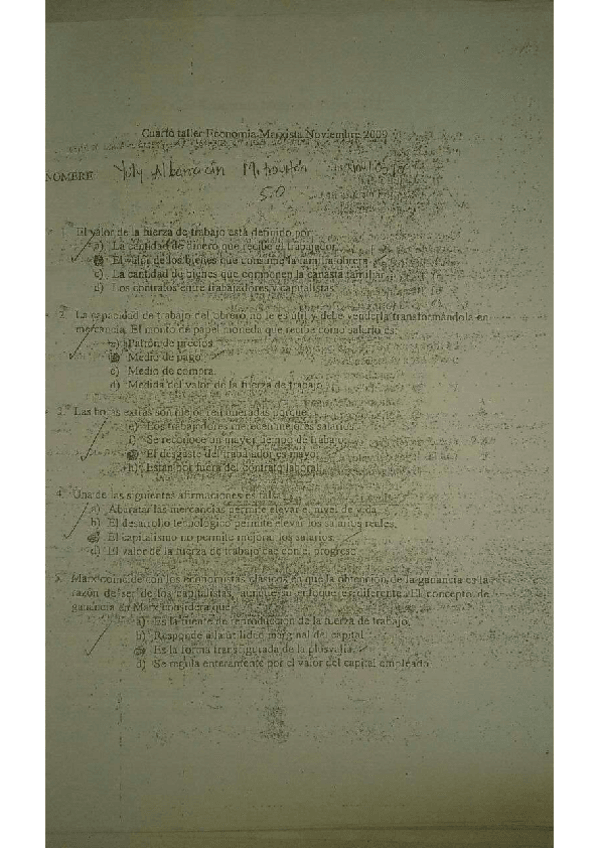 Cuarto taller Economía Marxista Noviembre 2009
NOMBRE Yuly Albarracín
5.0
1. El valor de la fuerza de trabajo está definido por:
a) La cantidad de dinero que recibe el trabajador.
b) El valor de los bienes que consume la familia obrera.
c) La cantidad de bienes que componen la canasta familiar.
d) Los contratos entre trabajadores y capitalistas.
2. La capacidad de trabajo del obrero no le es útil y debe venderla transformándola en
mercancía. El monto de papel moneda que recibe como salario es:
a) Patrón de precios.
b) Medio de pago.
c) Medio de compra.
d) Medida del valor de la fuerza de trabajo.
3. Las horas extras son mejor remuneradas porque:
e) Los trabajadores merecen mejores salarios.
f) Se reconoce un mayor tiempo de trabajo.
g) El desgaste del trabajador es mayor.
h) Están por fuera del contrato laboral.
4. Una de las siguientes afirmaciones es falsa:
a) Abaratar las mercancías permite elevar el nivel de vida.
b) El desarrollo tecnológico permite elevar los salarios reales.
c) El capitalismo no permite mejorar los salarios.
d) El valor de la fuerza de trabajo cae con el progreso
5. Marx coincide con los economistas clásicos en que la obtención de la ganancia es la
razón de ser de los capitalistas, aunque su enfoque es diferente. El concepto de
ganancia en Marx considera que:
a) Es la fuente de reproducción de la fuerza de trabajo.
b) Responde a la utilidad marginal del capital.
c) Es la forma transfigurada de la plusvalía.
d) Se regula enteramente por el valor del capital empleado